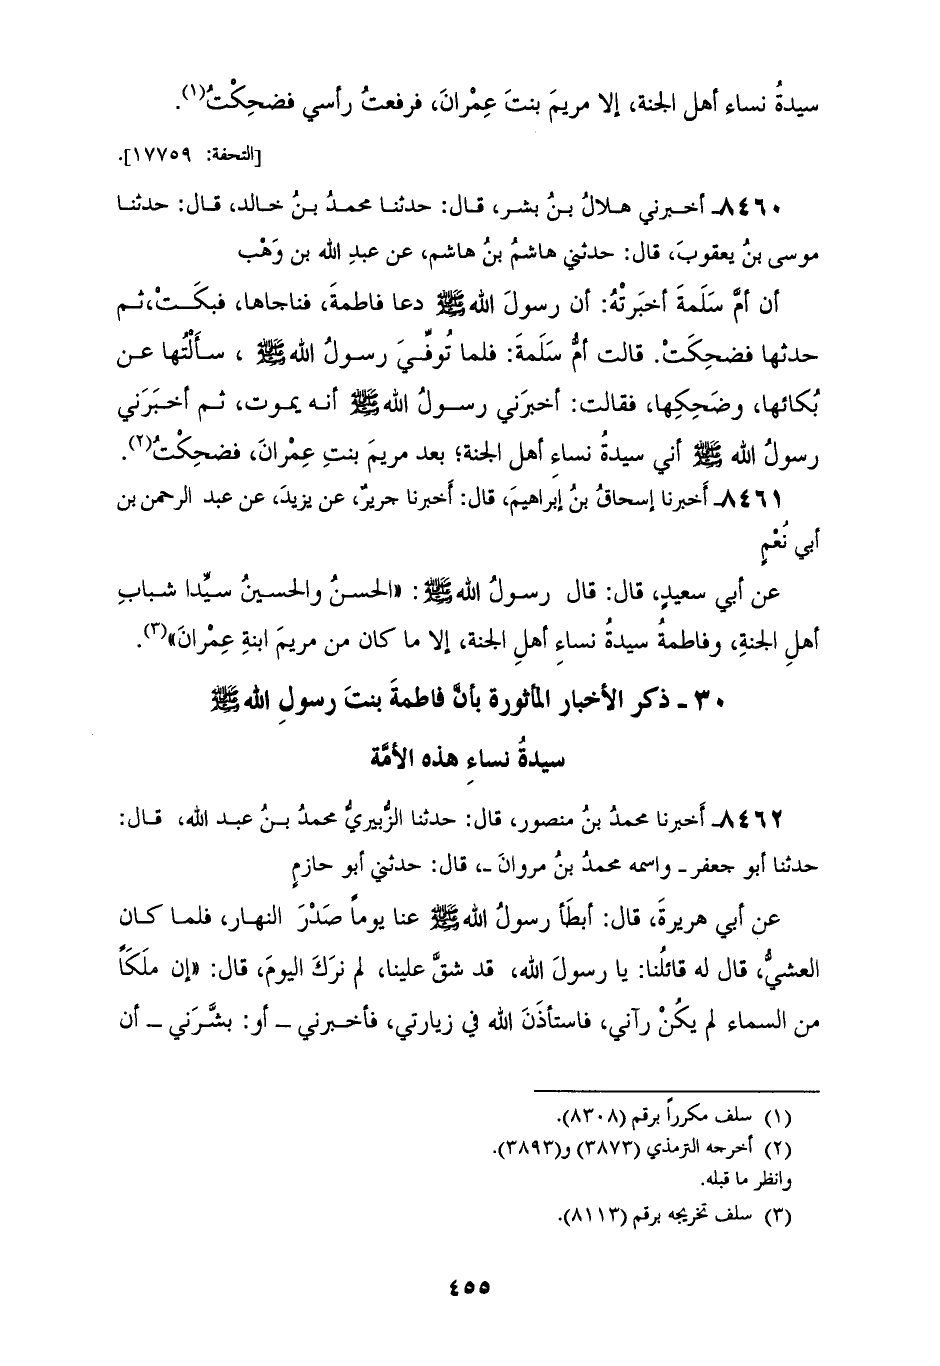 سيدةُ نساء أهل الجنة، إلا مريمَ بنتَ عِمْرانَ، فرفعتُ رأسي فضحِكْتُ(١).
[التحفة: ١٧٧٥٩].
٨٤٦٠ـ أخبرني هلالُ بنُ بشر، قال: حدثنا محمدُ بنُ خالد، قال: حدثنا
موسى بنُ يعقوبَ، قال: حدثني هاشمُ بنُ هاشم، عن عبدِ الله بن وَهْب
أن أمَّ سَلَمةَ أخبَرتْهُ: أن رسولَ الله ﷺ دعا فاطمةَ، فناجاها، فبكَتْ، ثم
حدثها فضحِكَتْ. قالت أمُّ سَلَمةَ: فلما تُوفِّيَ رسولُ الله ﷺ ، سألْتُها عن
بُكائها، وضَحِكِها، فقالت: أخبرَني رسولُ الله ﷺ أنه يموت، ثم أخبَرَني
رسولُ الله ﷺ أني سيدةُ نساءِ أهل الجنة؛ بعد مريمَ بنتِ عِمْرانَ، فضحِكْتُ(٢).
٨٤٦١ـ أَخبرنا إسحاقُ بنُ إبراهيمَ، قال: أَخبرنا جريرٌ، عن يزيدَ، عن عبد الرحمن بن
أبي نُعْمٍ
عن أبي سعيدٍ، قال: قال رسولُ الله ﷺ : «الحسنُ والحسينُ سيِّدا شبابِ
أهلِ الجنةِ، وفاطمةُ سيدةُ نساءِ أهلِ الجنة، إلا ما كان من مريمَ ابنةِ عِمْرانَ»(٣).
٣٠ ـ ذكر الأخبار المأثورة بأنَّ فاطمةَ بنتَ رسولِ الله ﷺ
سيدةُ نساءِ هذه الأمَّة
٨٤٦٢ـ أَخبرنا محمدُ بنُ منصور، قال: حدثنا الزُّبيريُّ محمدُ بنُ عبد الله، قال:
حدثنا أبو جعفر ـ واسمه محمدُ بنُ مروانَ ـ، قال: حدثني أبو حازمٍ
عن أبي هريرةَ، قال: أبطَأ رسولُ الله ﷺ عنا يوماً صَدْرَ النهار، فلما كان
العشيُّ، قال له قائلُنا: يا رسولَ الله، قد شقَّ علينا، لم نرَكَ اليومَ، قال: «إن ملَكَاً
من السماء لم يكُنْ رآني، فاستأذَنَ الله في زيارتي، فأخبرني ـ أو: بشَّرَني ـ أن
(١) سلف مكرراً برقم (٨٣٠٨).
(٢) أخرجه الترمذي (٣٨٧٣) و(٣٨٩٣).
وانظر ما قبله.
(٣) سلف تخريجه برقم (٨١١٣).
٤٥٥